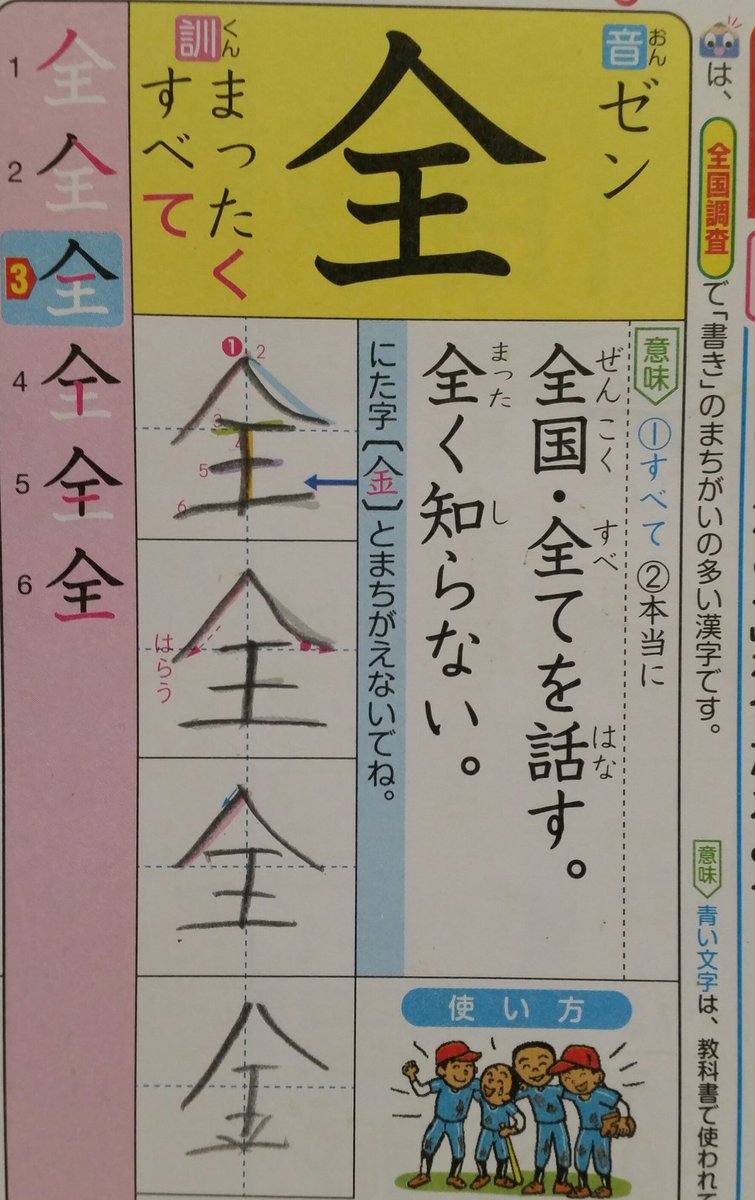 は、全国調査で「書き」のまちがいの多い漢字です。
意味 青い文字は、教科書で使われ
音 おん
ゼン
全
訓 くん
まったく
すべて
1 全
2 全
3 全
4 全
5 全
6 全
意味 ①すべて ②本当に
ぜんこく すべ はな
全国・全てを話す。
まった し
全く知らない。
にた字〔金〕とまちがえないでね。
1 2 3 4 5 6
全
全
はらう
全
金
使い方